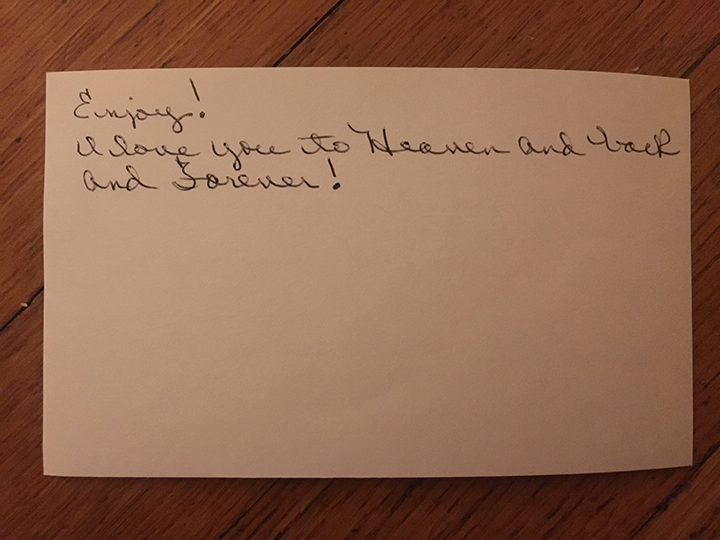 Enjoy!
I love you to Heaven and back
and Forever!